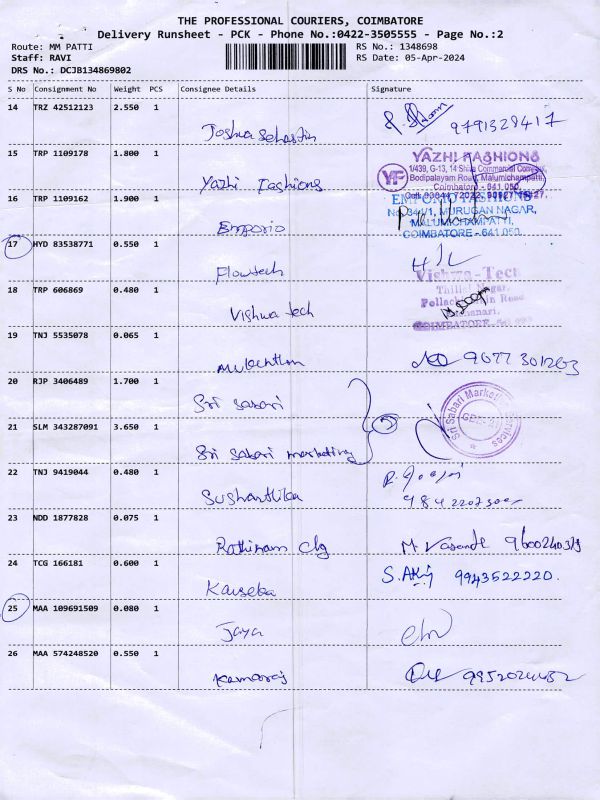 THE PROFESSIONAL COURIERS, COIMBATORE
Delivery Runsheet - PCK - Phone No.:0422-3505555 - Page No.:2
Route: MM PATTI
RS No.: 1348698
Staff: RAVI
RS Date: 05-Apr-2024
DRS No.: DCJB134869802
S No Consignment No Weight PCS Consignee Details Signature
14 TRZ 42512123 2.550 1
Joshua Sebastin 9791328417
15 TRP 1109178 1.800 1
Yazhi Fashions
YAZHI FASHIONS
YF
1/439, G-13, 14 Shiva Commercial Complex,
Bodipalayam Road, Malumichampatti,
Coimbatore - 641 050.
16 TRP 1109162 1.900 1
Emporio
EMPORIO FASHIONS
No. 344/1, MURUGAN NAGAR,
MALUMICHAMPATTI,
COIMBATORE - 641 050.
17 HYD 83538771 0.550 1
Flowtech
18 TRP 606869 0.480 1
Vishwa tech
Vishwa-Tech
Nagar,
Road
COIMBATORE
19 TNJ 5535078 0.065 1
9077301203
20 RJP 3406489 1.700 1
Sri Sabari
21 SLM 343287091 3.650 1
Sri Sabari marketing
2
Sri Sabari Marketing Services
22 TNJ 9419044 0.480 1
Sushanthika
23 NDD 1877828 0.075 1
Rathinam clg
M. Vasanth
24 TCG 166181 0.600 1
Kauseka
9943522220.
25 MAA 109691509 0.080 1
Jaya
26 MAA 574248520 0.550 1
Kamaraj